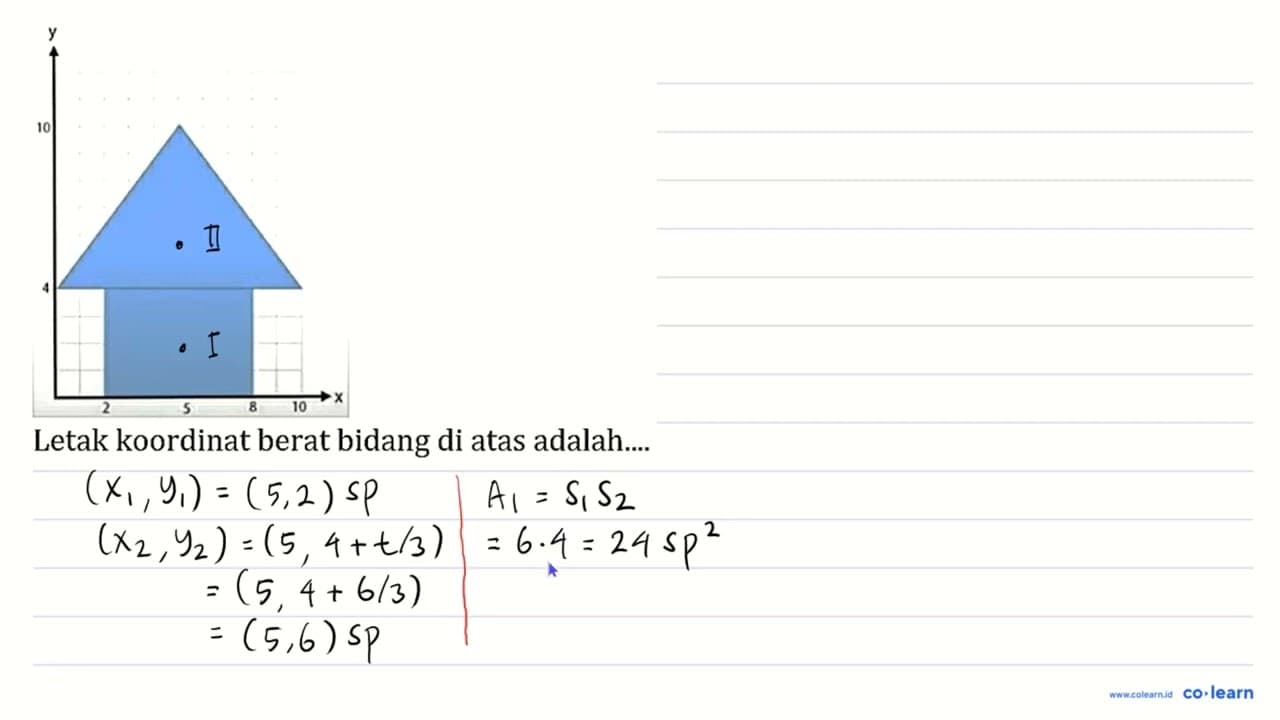 y
10
II
4
I
x
2 5 8 10
Letak koordinat berat bidang di atas adalah....
(x₁, y₁) = (5,2) sp
(x₂, y₂) = (5, 4 + t/3)
= (5, 4 + 6/3)
= (5,6) sp
A₁ = s₁ s₂
= 6 · 4 = 24 sp²
www.colearn.id co·learn